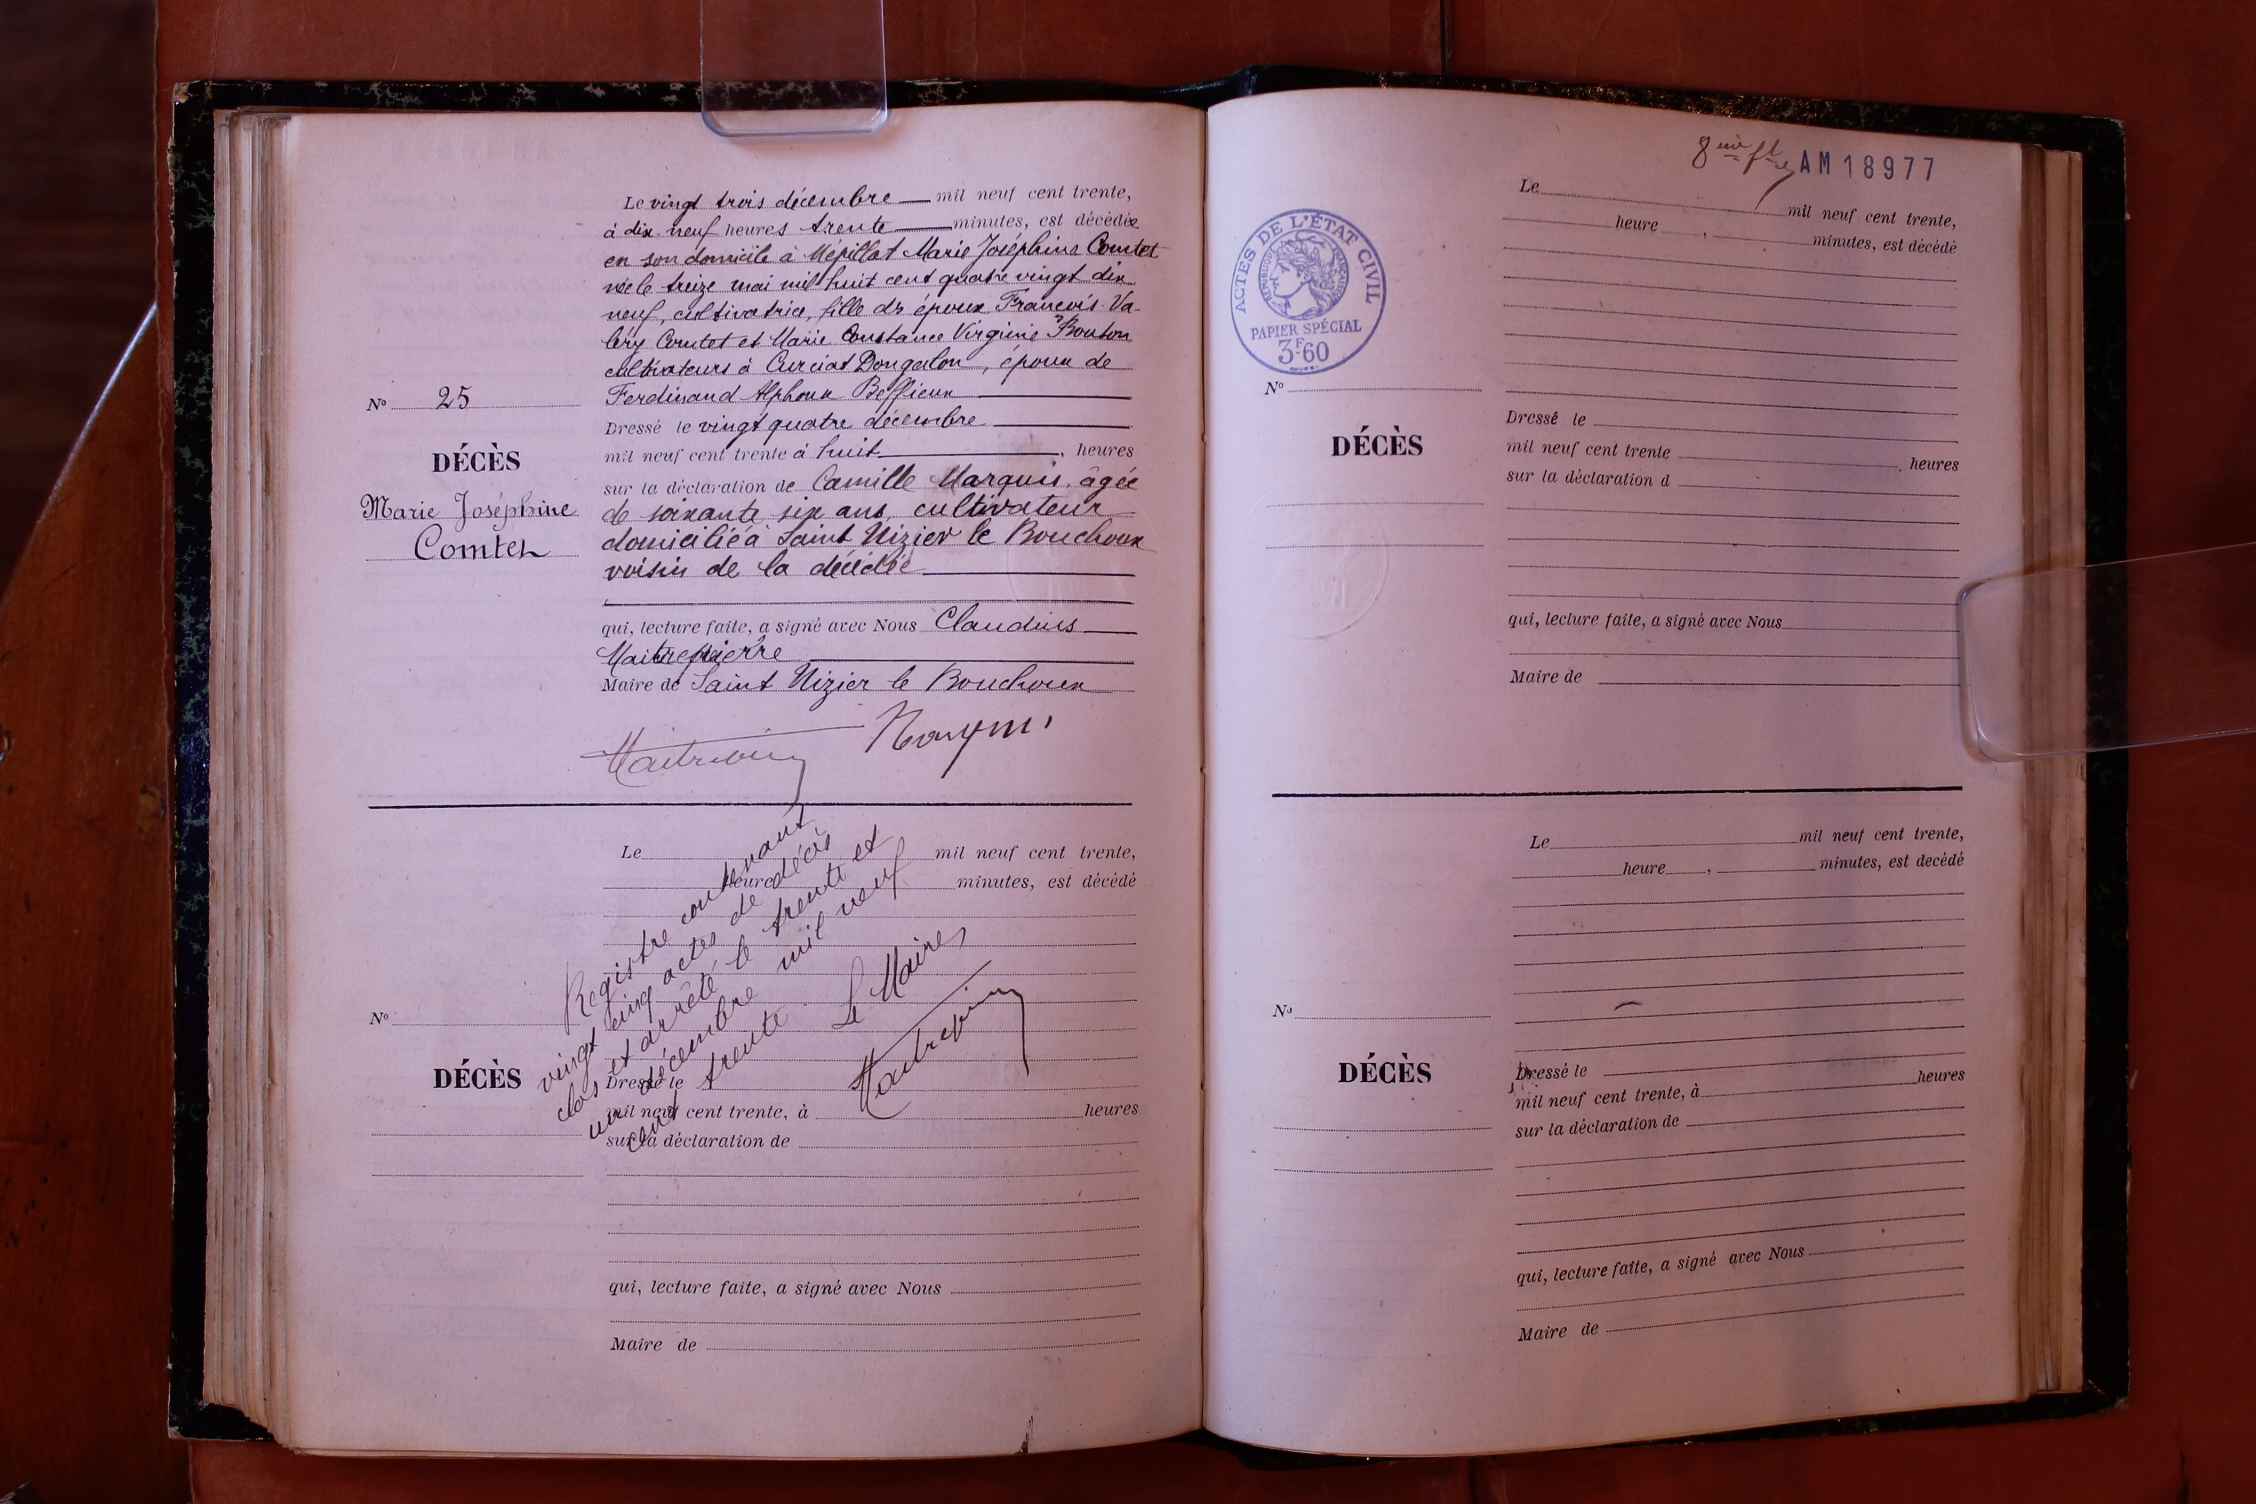 Le vingt trois décembre mil neuf cent trente,
à dix neuf heures trente minutes, est décédée
en son domicile à Mépillat Marie Joséphine Comtet
née le treize mai mil huit cent quatre vingt dix
neuf, cultivatrice, fille des époux François Va-
léry Comtet et Marie Constance Virginie Bouton
cultivateurs à Curciat Dongalon, époux de
Ferdinand Alphonse Beffieux
Dressé le vingt quatre décembre
mil neuf cent trente à huit, heures
sur la déclaration de Camille Marquis, âgée
de soixante six ans, cultivateur
domicilié à Saint Nizier le Bouchoux
voisin de la décédée
qui, lecture faite, a signé avec Nous Claudius
Maitrepierre
Maire de Saint Nizier le Bouchoux
No 25
DÉCÈS
Marie Joséphine
Comtet
Le mil neuf cent trente,
heure minutes, est décédé
No
DÉCÈS
Dressé le
mil neuf cent trente, à heures
sur la déclaration de
qui, lecture faite, a signé avec Nous
Maire de
Registre contenant
vingt cinq actes de décès
clos et arrêté le trente et
un décembre mil neuf
cent trente
Le Maire,
8ème
AM18977
ACTES DE L'ÉTAT CIVIL
RÉPUBLIQUE FRANÇAISE
PAPIER SPÉCIAL
3F60
Le mil neuf cent trente,
heure , minutes, est décédé
No
DÉCÈS
Dressé le
mil neuf cent trente , heures
sur la déclaration d
qui, lecture faite, a signé avec Nous
Maire de
Le mil neuf cent trente,
heure , minutes, est decédé
No
DÉCÈS
Dressé le
mil neuf cent trente, à heures
sur la déclaration de
qui, lecture faite, a signé avec Nous
Maire de